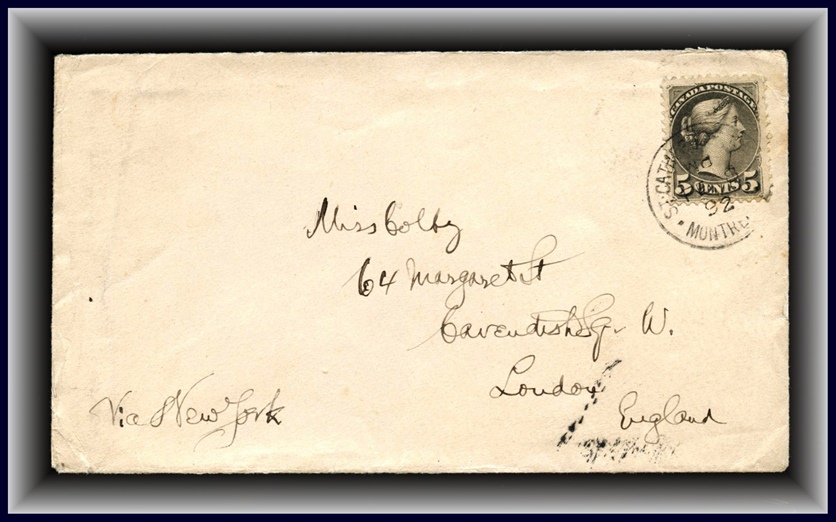 CANADA POSTAGE
5 CENTS 5
92
MONTRE
Miss Colby
64 Margaret St
Cavendish Sq. W.
London
England
Via New York